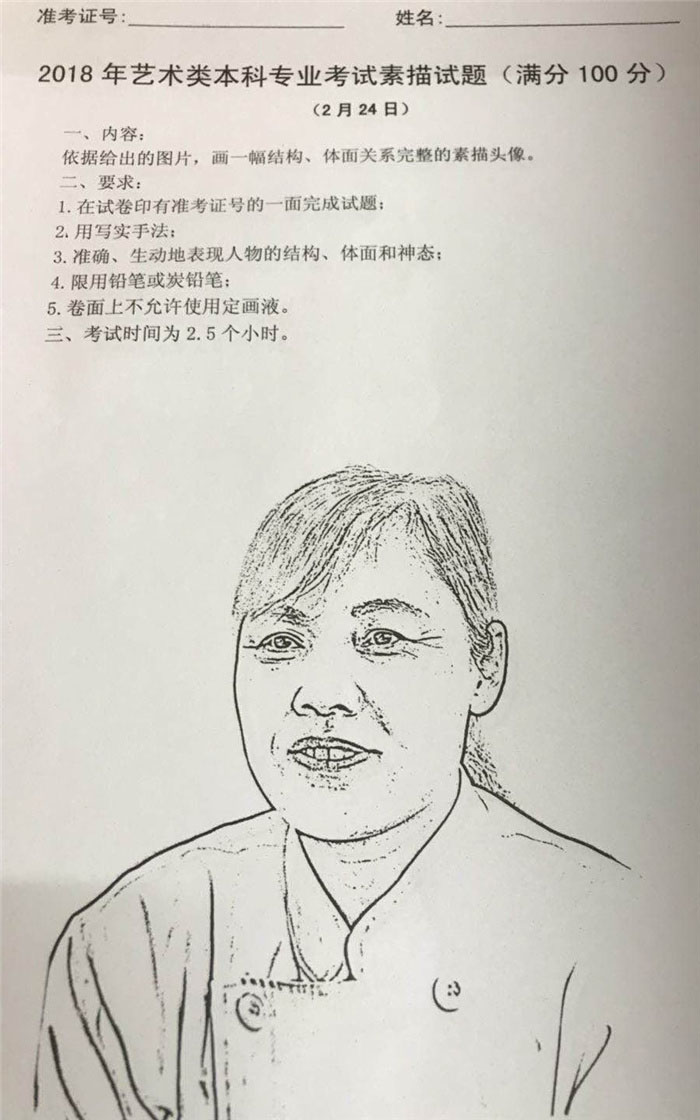 准考证号:
姓名:
2018 年艺术类本科专业考试素描试题（满分 100 分）
（2 月 24 日）
一、内容：
依据给出的图片，画一幅结构、体面关系完整的素描头像。
二、要求：
1. 在试卷印有准考证号的一面完成试题；
2. 用写实手法；
3. 准确、生动地表现人物的结构、体面和神态；
4. 限用铅笔或炭铅笔；
5. 卷面上不允许使用定画液。
三、考试时间为 2.5 个小时。